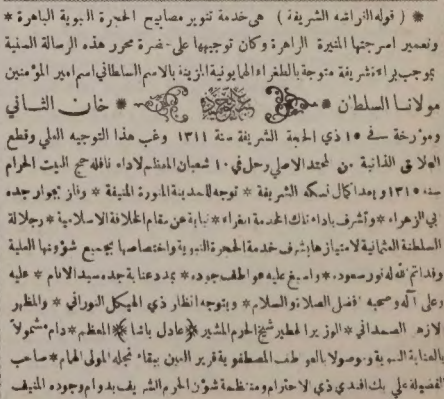 * ( قوله الفراشه الشريفة ) هي خدمة تنوير مصابيح الحجرة النبوية الباهرة *
وتعمير اسرجتها المنيرة الزاهرة وكان توجيهها على حضرة محرر هذه الرسالة السنية
بموجب براءة شريفة متوجة بالطغراء الهمايونية المزينة بالاسم السلطاني اسم امير المؤمنين
مولانا السلطان * عبد الحميد * خان الثاني
ومؤرخة في ١٥ ذي الحجة الشريفة سنة ١٣١١ وغب هذا التوجيه العلي وقطع
العلائق الذاتية من المحتد الاصلي رحل في ١٠ شعبان المعظم لاداء نافلة حج البيت الحرام
سنة ١٣١٥ وبعد اكمال نسكه الشريفة * توجه للمدينة المنورة المنيفة * وفاز بجوار جده
ابي الزهراء * وتشرف باداء تلك الخدمة الغراء * نيابة عن مقام الخلافة الاسلامية * وجلالة
السلطنة العثمانية لامتيازها بشرف خدمة الحجرة النبوية واختصاصها بجميع شؤونها العلية
وقد اتم الله له نور سعوده * واسبغ عليه عواطف جوده * بمدد عناية جده سيد الانام * عليه
وعلى آله وصحبه افضل الصلاة والسلام * وبتوجه انظار ذي الهيكل النوراني * والمظهر
الازهر الصمداني * الوزير الخطير شيخ الحرم المشير * عادل باشا * المعظم * دام مشمولاً
بالعناية السرمدية وموصولا بالعواطف المصطفوية قرير العين ببقاء نجله المولى الهمام * صاحب
الفضيلة علي بك افندي ذي الاحترام ومنتظمة شؤن الحرم الشريف بدوام وجوده المنيف